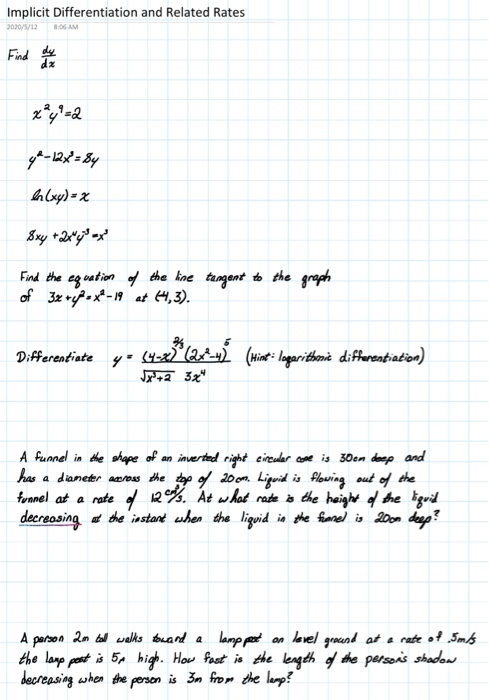 Implicit Differentiation and Related Rates
2020/5/12 8:06 AM
Find dy/dx
x²y⁹=2
y²-12x³=8y
ln(xy)=x
8xy+2x⁴y⁻³=x³
Find the equation of the line tangent to the graph
of 3x+y²=x²-19 at (-4,3).
Differentiate y = (4-x)^(2/3) (2x²-4)^5 / √(x³+2) 3x⁴ (Hint: logarithmic differentiation)
A funnel in the shape of an inverted right circular cone is 30cm deep and
has a diameter across the top of 20cm. Liquid is flowing out of the
funnel at a rate of 12 cm³/s. At what rate is the height of the liquid
decreasing at the instant when the liquid in the funnel is 20cm deep?
A person 2m tall walks toward a lamppost on level ground at a rate of .5m/s
the lamp post is 5m high. How fast is the length of the person's shadow
decreasing when the person is 3m from the lamp?